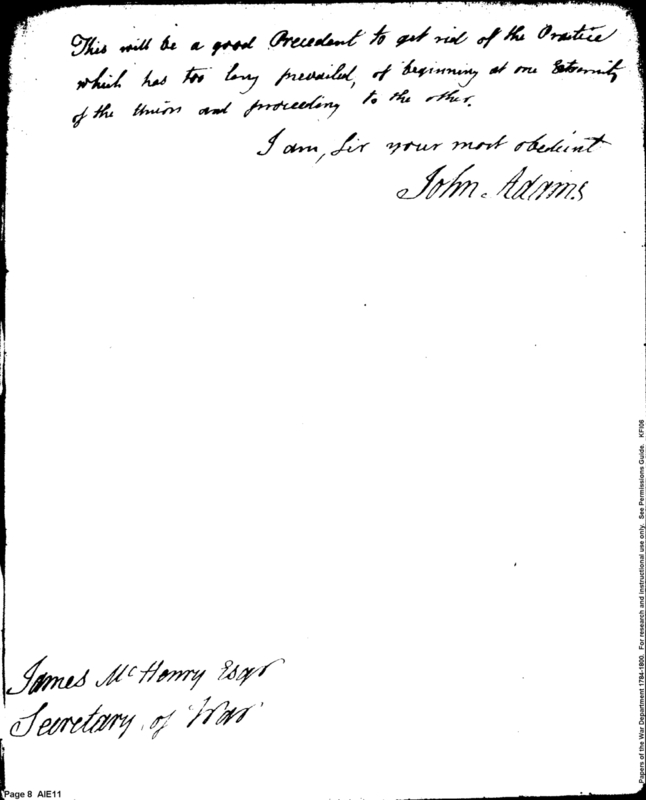 This will be a good Precedent to get rid of the Practice
which has too long prevailed, of beginning at one Extremity
of the Union and proceeding to the other.
I am, Sir your most obedient
John Adams
James McHenry Esqr
Secretary of War
Page 8 AIE11
Papers of the War Department 1784-1800. For research and instructional use only. See Permissions Guide. KFI06